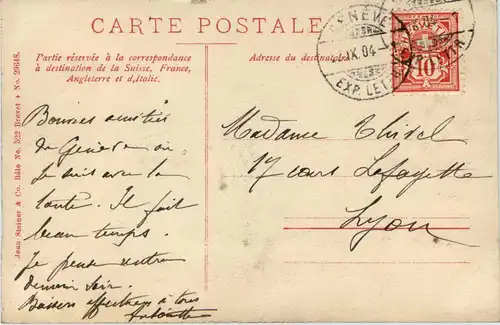 CARTE POSTALE
Partie réservée à la correspondance
à destination de la Suisse, France,
Angleterre et d'Italie.
Adresse du destinataire
GENÈVE
IX.04
EXP. LET
10
Jean Steiner & Co. Bâle No. 392 Brevet + No. 29648.
Bonnes amitiés
de Genève où
je suis avec la
tante. Il fait
beau temps.
Je pense rentrer
demain soir.
Baisers affectueux à tous
Antoinette
Madame Thisel
17 cours Lafayette
Lyon